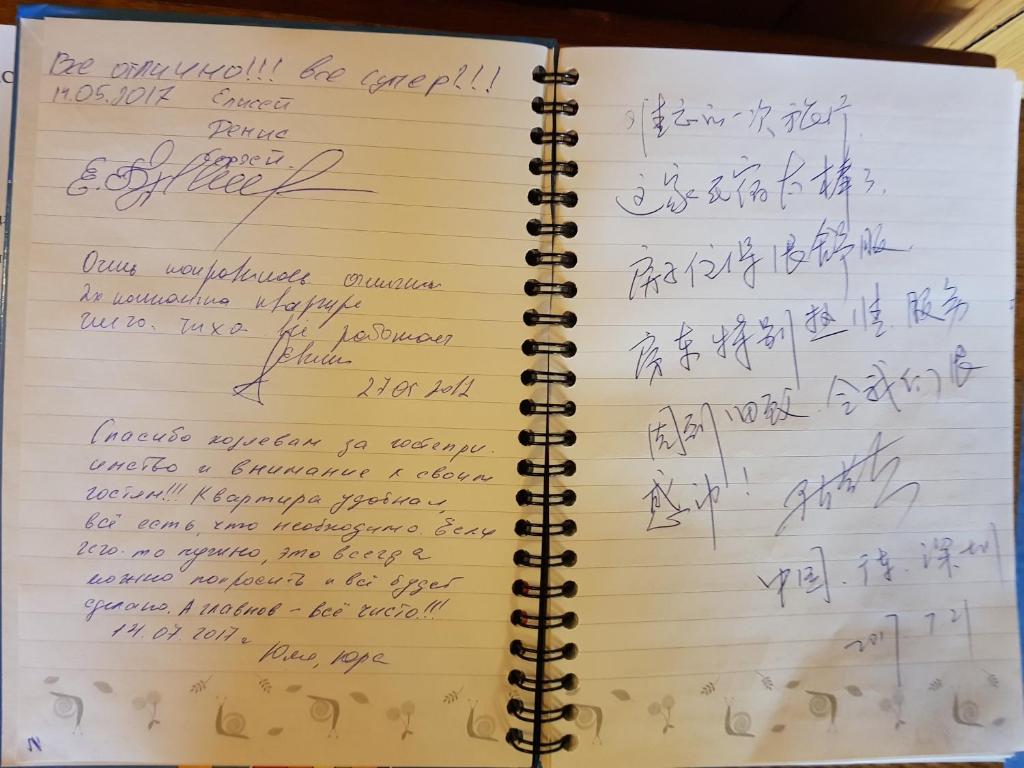 Все отлично!!! все супер!!!
14.05.2017 Елисей
Денис
Сергей
Очень понравилась
2х комнатна квартире
чисто. тихо не работает
27 05 2017
Спасибо хозяевам за гостепри-
имство и внимание к своим
гостям!!! Квартира удобная,
всё есть, что необходимо. Если
чего-то нужно, это всегда
можно попросить и всё будет
сделано. А главное – всё чисто!!!
14.07.2017г
Юля, Юра
一次旅行
这家民宿太棒了.
房子 很舒服
房东特别热情.服务
周到 令我们很
感动!
中国.广东.深圳
2017 7 21